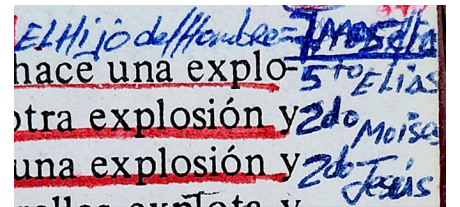 El Hijo del Hombre =
hace una explo-
5to Elías
otra explosión y
2do Moisés
una explosión y
2do Jesús